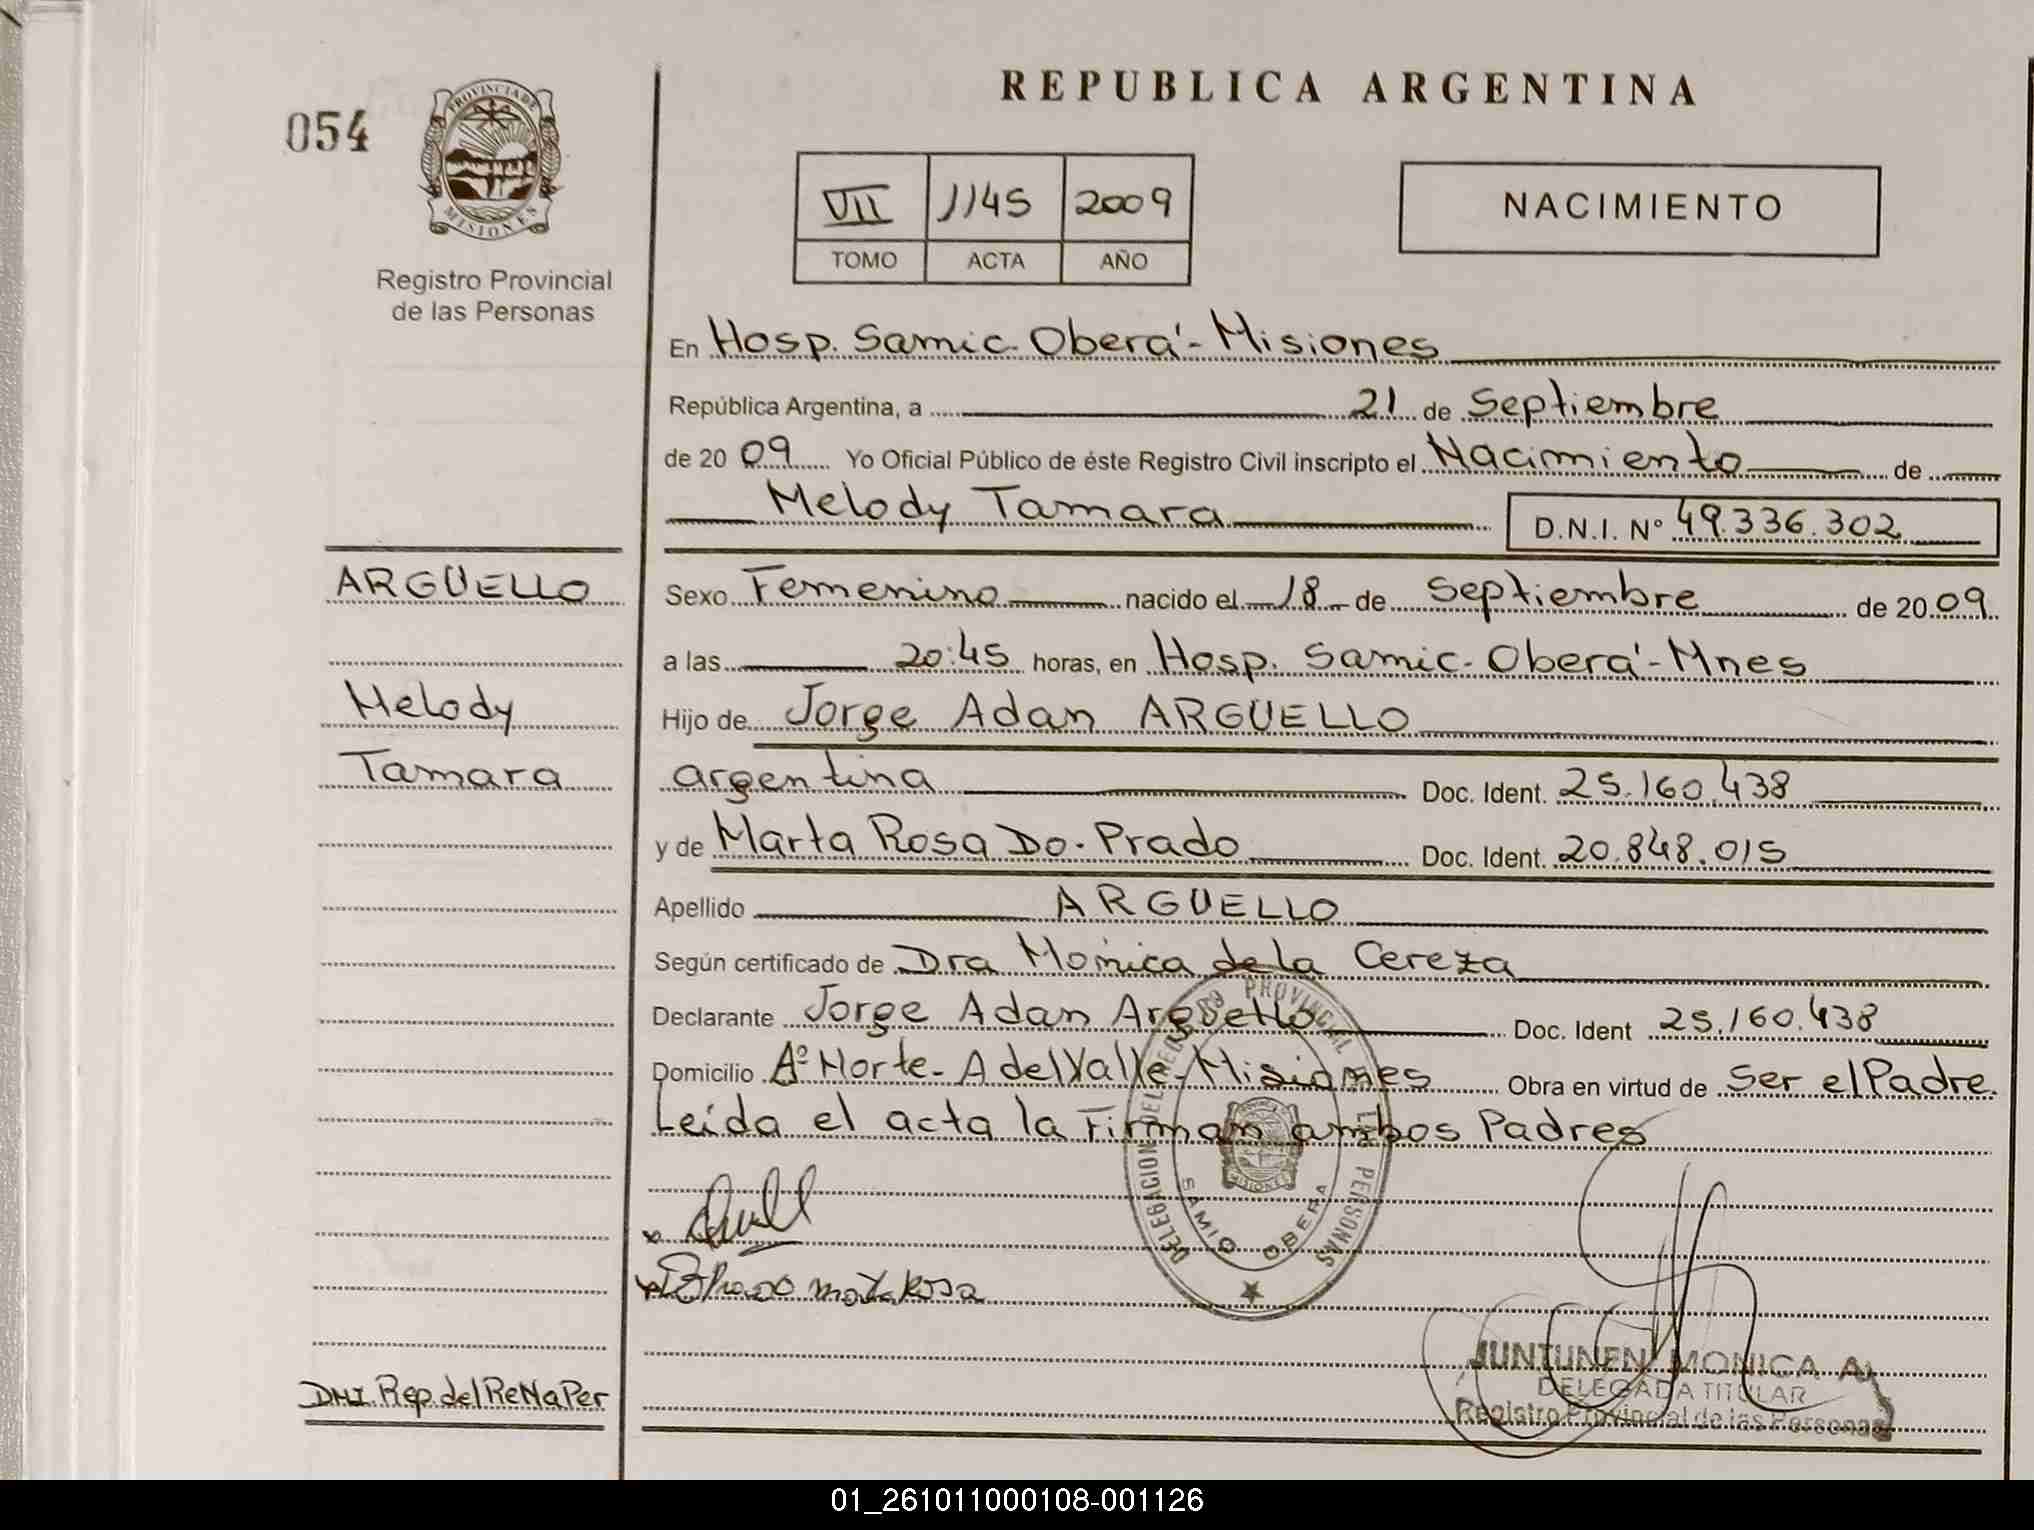 054
PROVINCIA DE
MISIONES
Registro Provincial
de las Personas
REPUBLICA ARGENTINA
VII 1145 2009
TOMO ACTA AÑO
NACIMIENTO
En Hosp. Samic. Oberá - Misiones
República Argentina, a 21 de Septiembre
de 20 09 Yo Oficial Público de éste Registro Civil inscripto el Nacimiento de
Melody Tamara D.N.I. Nº 49.336.302
ARGÜELLO
Melody
Tamara
Sexo Femenino nacido el 18 de Septiembre de 20 09
a las 20:45 horas, en Hosp. Samic - Oberá - Mnes
Hijo de Jorge Adan ARGUELLO
argentina Doc. Ident. 25.160.438
y de Marta Rosa Do. Prado Doc. Ident. 20.848.015
Apellido ARGUELLO
Según certificado de Dra Mónica de la Cereza
Declarante Jorge Adan Arguello Doc. Ident 25.160.438
Domicilio Aº Norte - A del Valle - Misiones Obra en virtud de Ser el Padre.
Leída el acta la Firman ambos Padres
DELEGACION DEL REGISTRO PROVINCIAL DE LAS PERSONAS
SAMIC OBERA
MISIONES
JUNTUNEN MONICA A.
DELEGADA TITULAR
Registro Provincial de las Personas
DNI. Rep. del ReNaPer
01_261011000108-001126